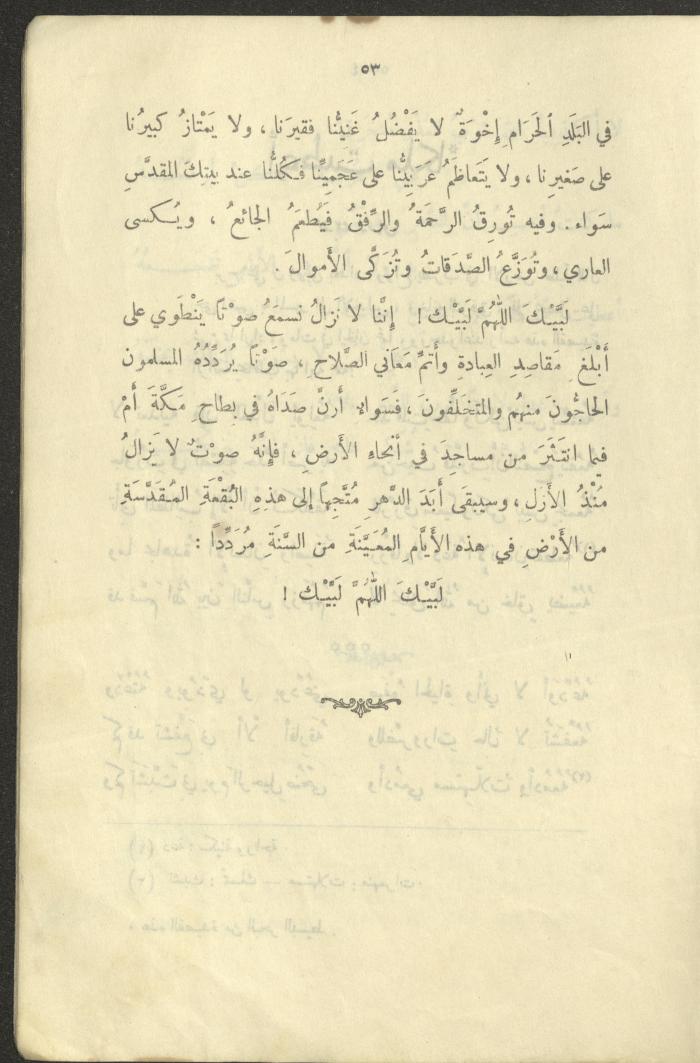 ٥٣
في البَلَدِ الحَرَامِ إِخْوَةٌ لا يَفْضُلُ غَنِيُّنا فقيرَنا ، ولا يَمْتازُ كبيرُنا
على صَغيرِنا ، ولا يَتَعاظَمُ عَرَبِيُّنا على عَجَمِيِّنا فكُلُّنا عند بيتِكَ المقدَّسِ
سَواء . وفيه تُورِقُ الرَّحمَةُ والرِّفْقُ فَيُطعَمُ الجائعُ ، ويُكسى
العاري ، وتُوَزَّعُ الصَّدَقاتُ وتُزَكَّى الأَموالَ .
لَبَّيْكَ اللّهُمَّ لَبَّيْك ! إِنَّنا لا نَزالُ نسمَعُ صوْتاً يَنْطَوي على
أَبْلَغِ مَقاصِدِ العِبادةِ وأَتمِّ مَعَاني الصَّلاحِ ، صَوْتاً يُرَدِّدُهُ المسلمون
الحاجُّونَ منهُم والمتخلِّفونَ ، فَسَواء أَرنَّ صَدَاهُ في بِطاحِ مَكَّةَ أَمْ
فيما انتَثَرَ من مساجِدَ في أنحاءِ الأَرضِ ، فإنَّهُ صوْتٌ لا يَزالُ
مُنْذُ الأَزلِ ، وسيبقى أَبَدَ الدَّهرِ مُتَّجِهاً إلى هذِهِ البُقْعَةِ المُقدَّسَةِ
من الأَرْضِ في هذه الأَيَّامِ المُعَيَّنَةِ من السَّنَةِ مُرَدِّداً :
لَبَّيْكَ اللّهُمَّ لَبَّيْك !